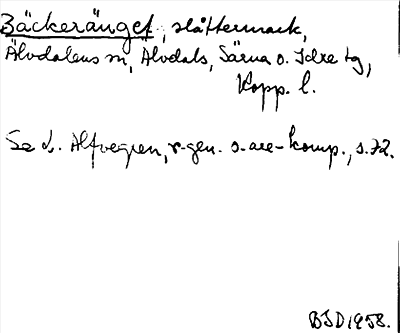 Bäckeränget, slåttermark,
Älvdalens sn, Älvdals, Särna o. Idre tg,
Kopp. l.
Se L. Alfvegren, r-gen. o. -are-komp., s. 72.
BSD 1958.